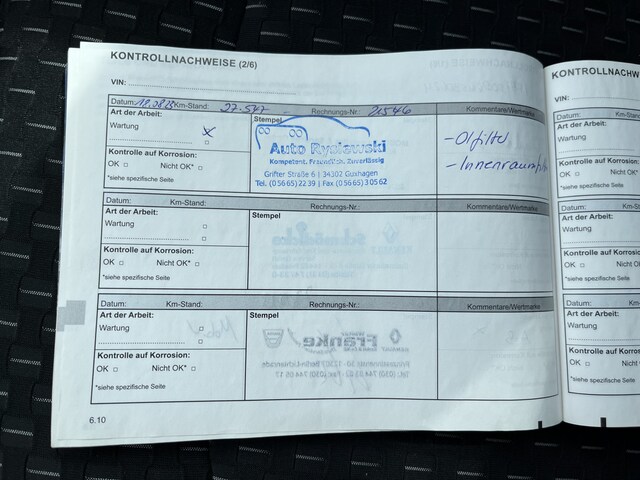 KONTROLLNACHWEISE (2/6)
VIN:
Datum: 18.08.23 Km-Stand: 27.547 Rechnungs-Nr.: 21546 Kommentare/Wertmarke
Art der Arbeit:
Wartung
Kontrolle auf Korrosion:
OK □ Nicht OK* □
*siehe spezifische Seite
Stempel
Auto Rysiewski
Kompetent. Freundlich. Zuverlässig
Grifter Straße 6 | 34302 Guxhagen
Tel. (05665) 2239 | Fax (05665) 30562
-Ölfilter
-Innenraumfilter
Datum: Km-Stand: Rechnungs-Nr.: Kommentare/Wertmarke
Art der Arbeit:
Wartung □
Kontrolle auf Korrosion:
OK □ Nicht OK* □
*siehe spezifische Seite
Stempel
Datum: Km-Stand: Rechnungs-Nr.: Kommentare/Wertmarke
Art der Arbeit:
Wartung □
Kontrolle auf Korrosion:
OK □ Nicht OK* □
*siehe spezifische Seite
Stempel
6.10
KONTROLLNACHWEISE
VIN:
Datum:
Art der Arbeit:
Wartung
Kontrolle auf
OK □
*siehe spezifische
Datum:
Art der Arbeit:
Wartung
Kontrolle auf
OK □
*siehe spezifische
Datum:
Art der Arbeit:
Wartung
Kontrolle auf
OK □
*siehe spezifische